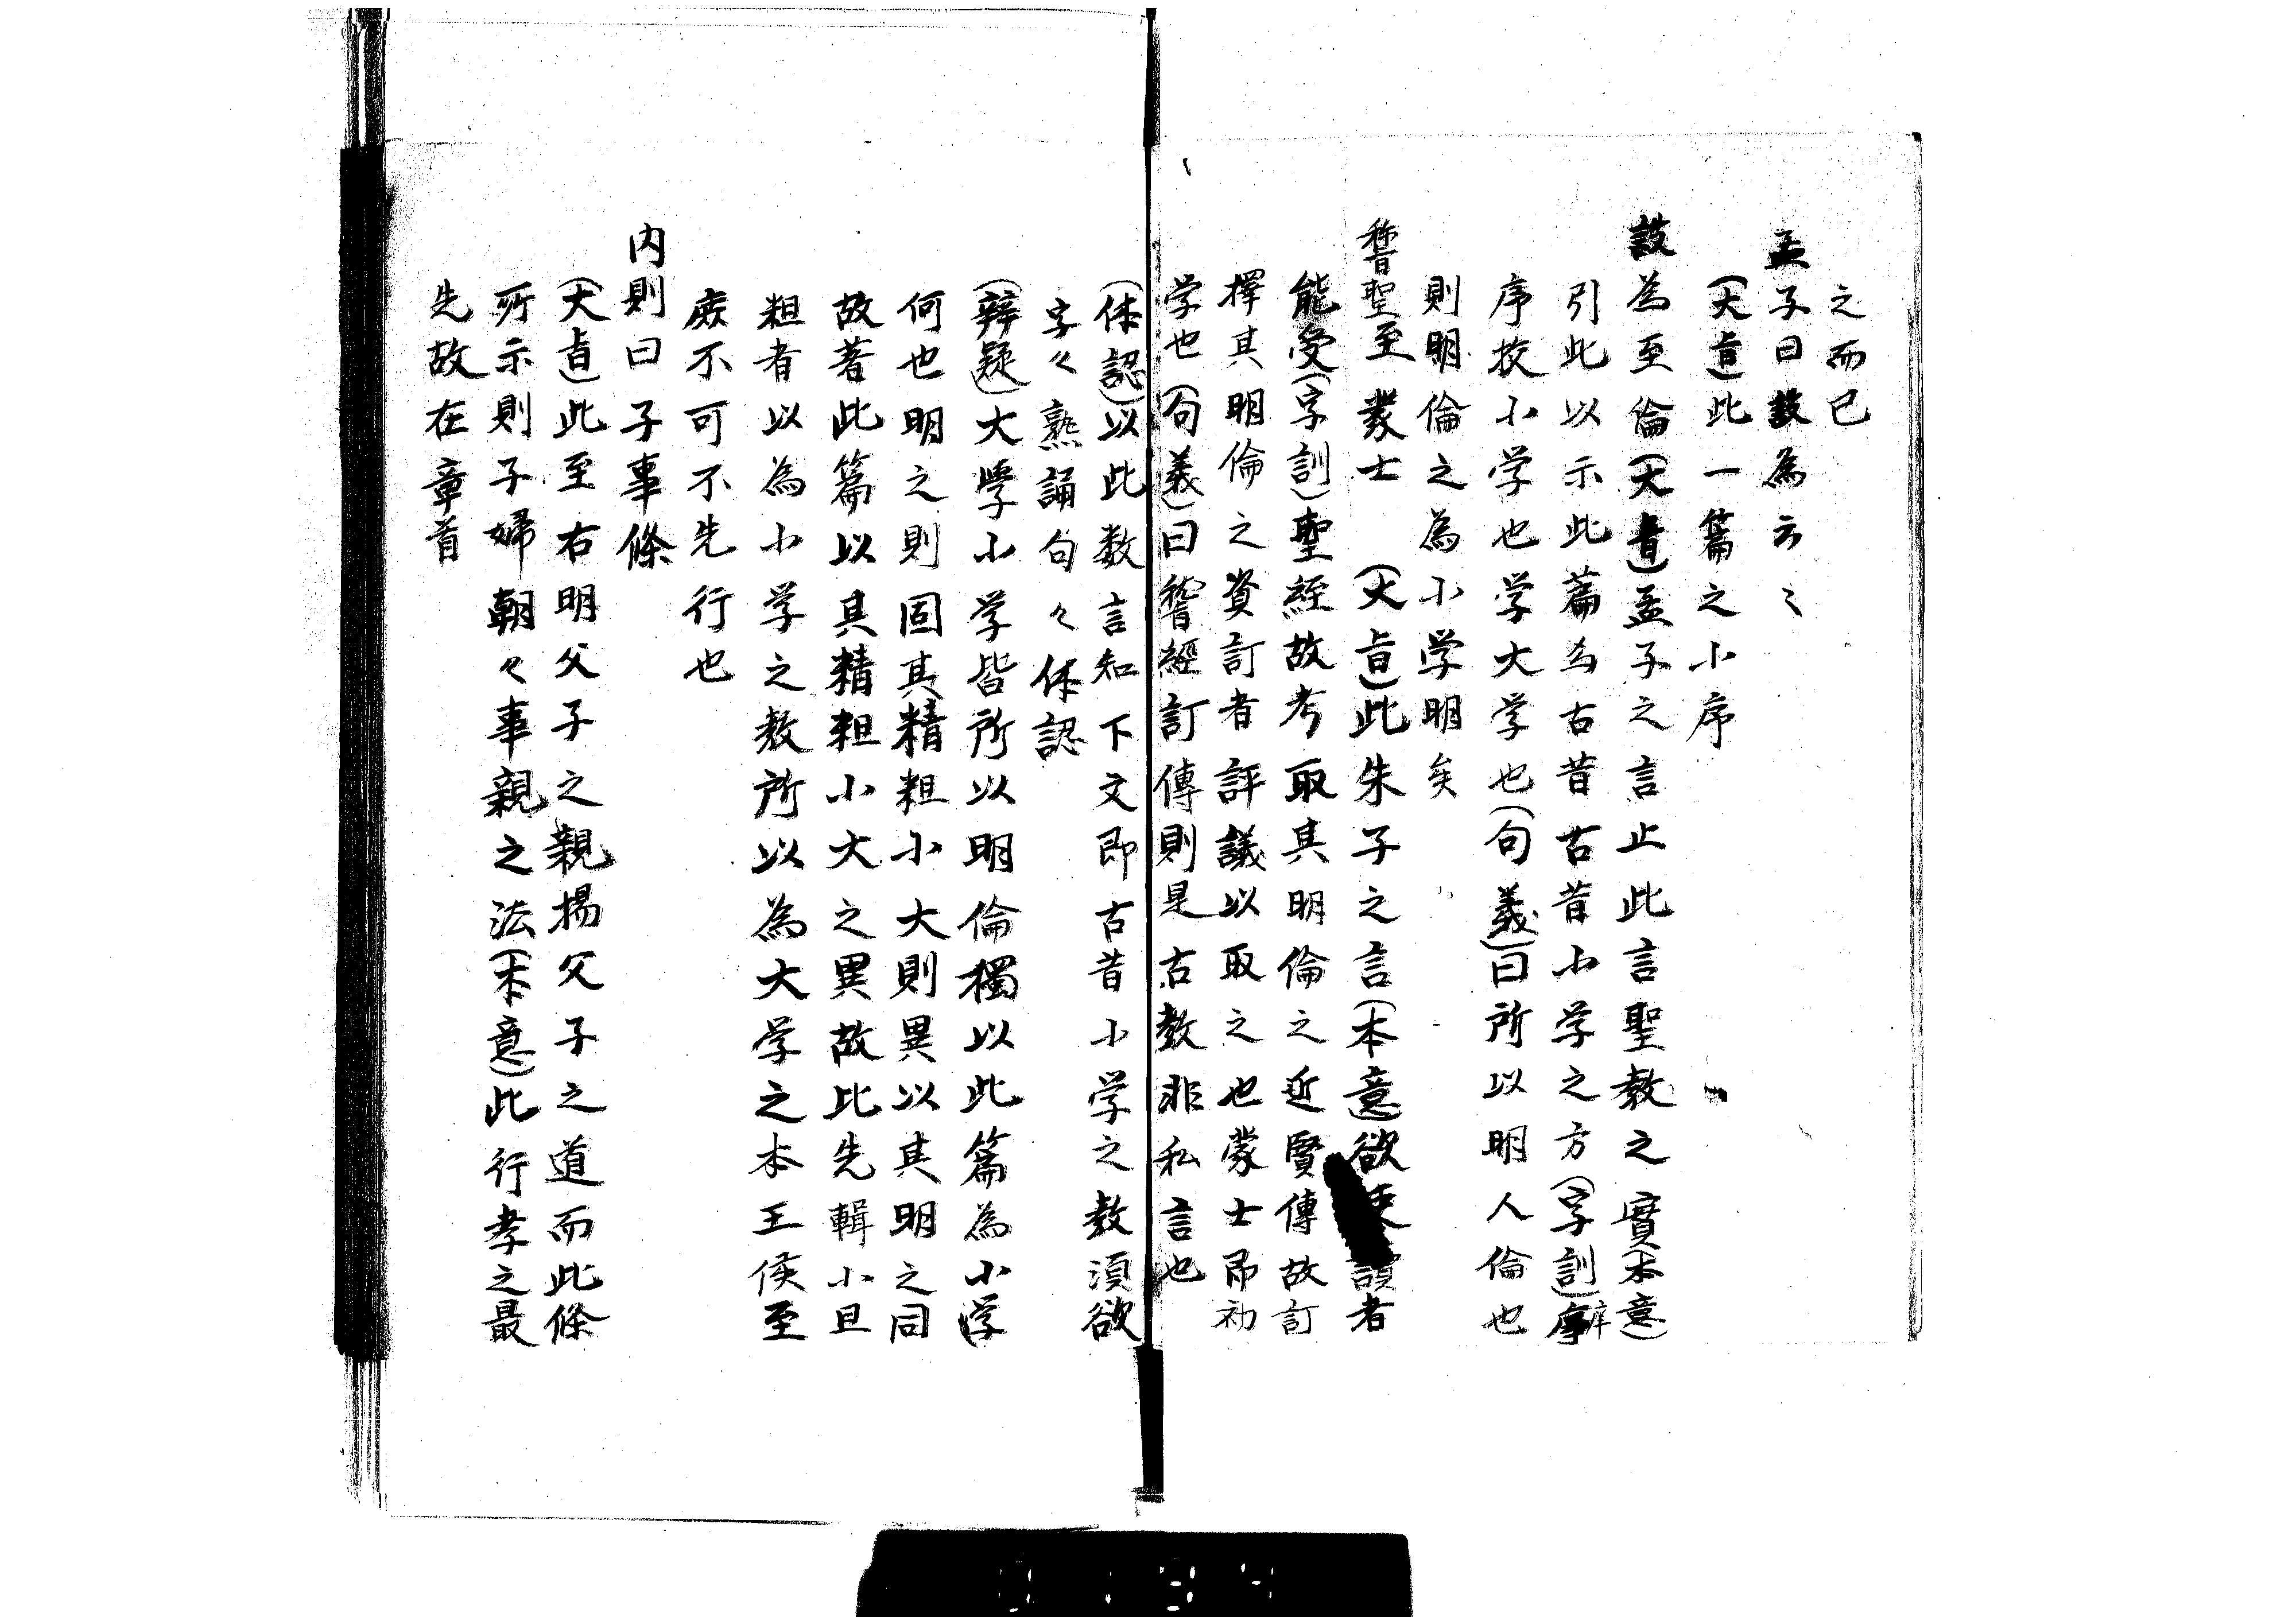 之而已
孟子曰設為云〻
(大旨)此一篇之小序
設為至倫(大旨)孟子之言止此言聖教之實(本意)
引此以示此篇為古昔古昔小学之方(字訓)庠
序挍小学也学大学也(句義)曰所以明人倫也
則明倫之為小学明矣
稽聖至蒙士 (大旨)此朱子之言(本意)欲讀者
能受(字訓)聖經故考取其明倫之近賢傳故訂
擇其明倫之資訂者評議以取之也蒙士昂初
学也(句義)曰稽經訂傳則是古教非私言也
(体認)以此数言知下文即古昔小学之教須欲
字々熟誦句々体認
(辨疑)大學小学皆所以明倫獨以此篇為小学
何也明之則固其精粗小大則異以其明之同
故著此篇以其精粗小大之異故比先輯小且
粗者以為小学之教所以為大学之本王侯至
庶不可不先行也
内則曰子事條
(大旨)此至右明父子之親揚父子之道而此條
所示則子婦朝々事親之法(本意)此行孝之最
先故在章首